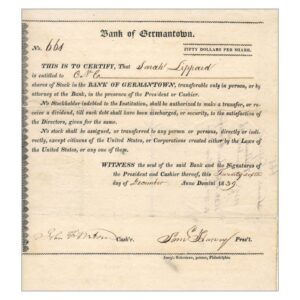 Bank of Germantown.
No. 661
FIFTY DOLLARS PER SHARE.
THIS IS TO CERTIFY, That Sarah Lippard
is entitled to One
shares of Stock in the BANK OF GERMANTOWN, transferable only in person, or by
attorney at the Bank, in the presence of the President or Cashier.
No Stockholder indebted to the Institution, shall be authorized to make a transfer, or re-
ceive a dividend, till such debt shall have been discharged, or security, to the satisfaction of
the Directors, given for the same.
No stock shall be assigned, or transferred to any person or persons, directly or indi-
rectly, except citizens of the United States, or Corporations created either by the Laws of the
United States, or any one of them.
WITNESS the seal of the said Bank and the Signatures
of the President and Cashier thereof, this Twenty sixth
day of December Anno Domini 1839.
John F Watson Cash'r.
Saml Harvey Pres't.
printer, Philadelphia.